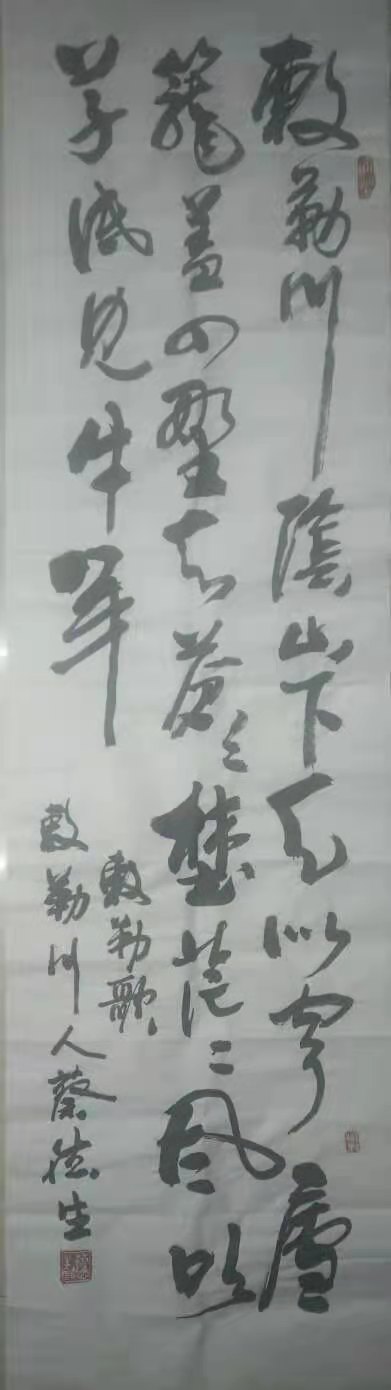 敕勒川陰山下天似穹廬
籠蓋四野天蒼々壄茫々風吹
草低見牛羊
敕勒歌
敕勒川人蔡德生